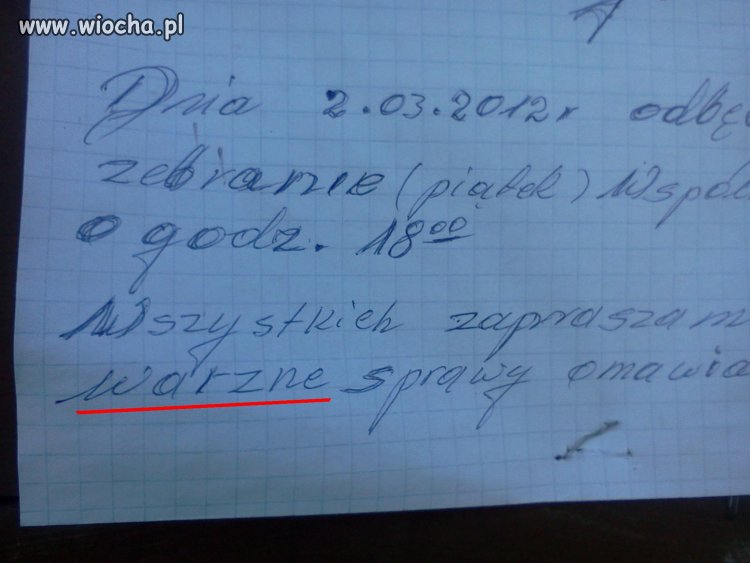 www.wiocha.pl
Dnia 2.03.2012r odbę
zebranie (piątek) Wspól
o godz. 18⁰⁰
Wszystkich zapraszam
warzne sprawy omawia